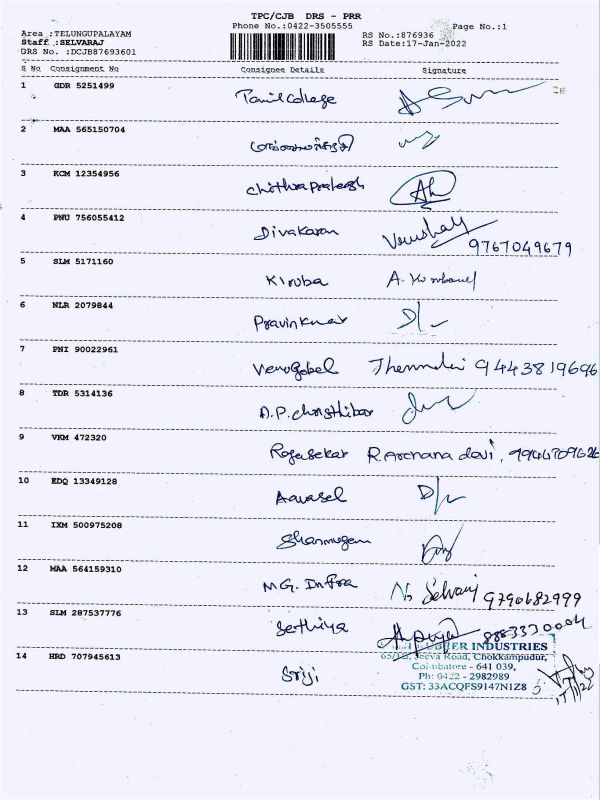 TPC/CJB DRS - PRR
Phone No.:0422-3505555
Page No.:1
Area :TELUNGUPALAYAM
Staff :SELVARAJ
DRS No. :DCJB87693601
RS No.:876936
RS Date:17-Jan-2022
S No Consignment No Consignee Details Signature
1 GDR 5251499 Tamil College
2 MAA 565150704
3 KCM 12354956 Chithra Prakash
4 PNU 756055412 Divakaran 9767049679
5 SLM 5171160 Kiruba
6 NLR 2079844 Pravin Kumar D/-
7 PNI 90022961 Venugobel 9443819696
8 TDR 5314136
9 VKM 472320 Rajasekar R. Archana devi,
10 EDQ 13349128 Aavasel D/-
11 IXM 500975208 Shanmugam
12 MAA 564159310 M.G. Infra Selvaraj 9790682999
13 SLM 287537776 Sethiya 8883330004
RUBBER INDUSTRIES
Jeeva Road, Chokkampudur,
Coimbatore - 641 039.
14 HRD 707945613 Sriji
Ph: 0422 - 2982989
GST: 33ACQFS9147N1Z8